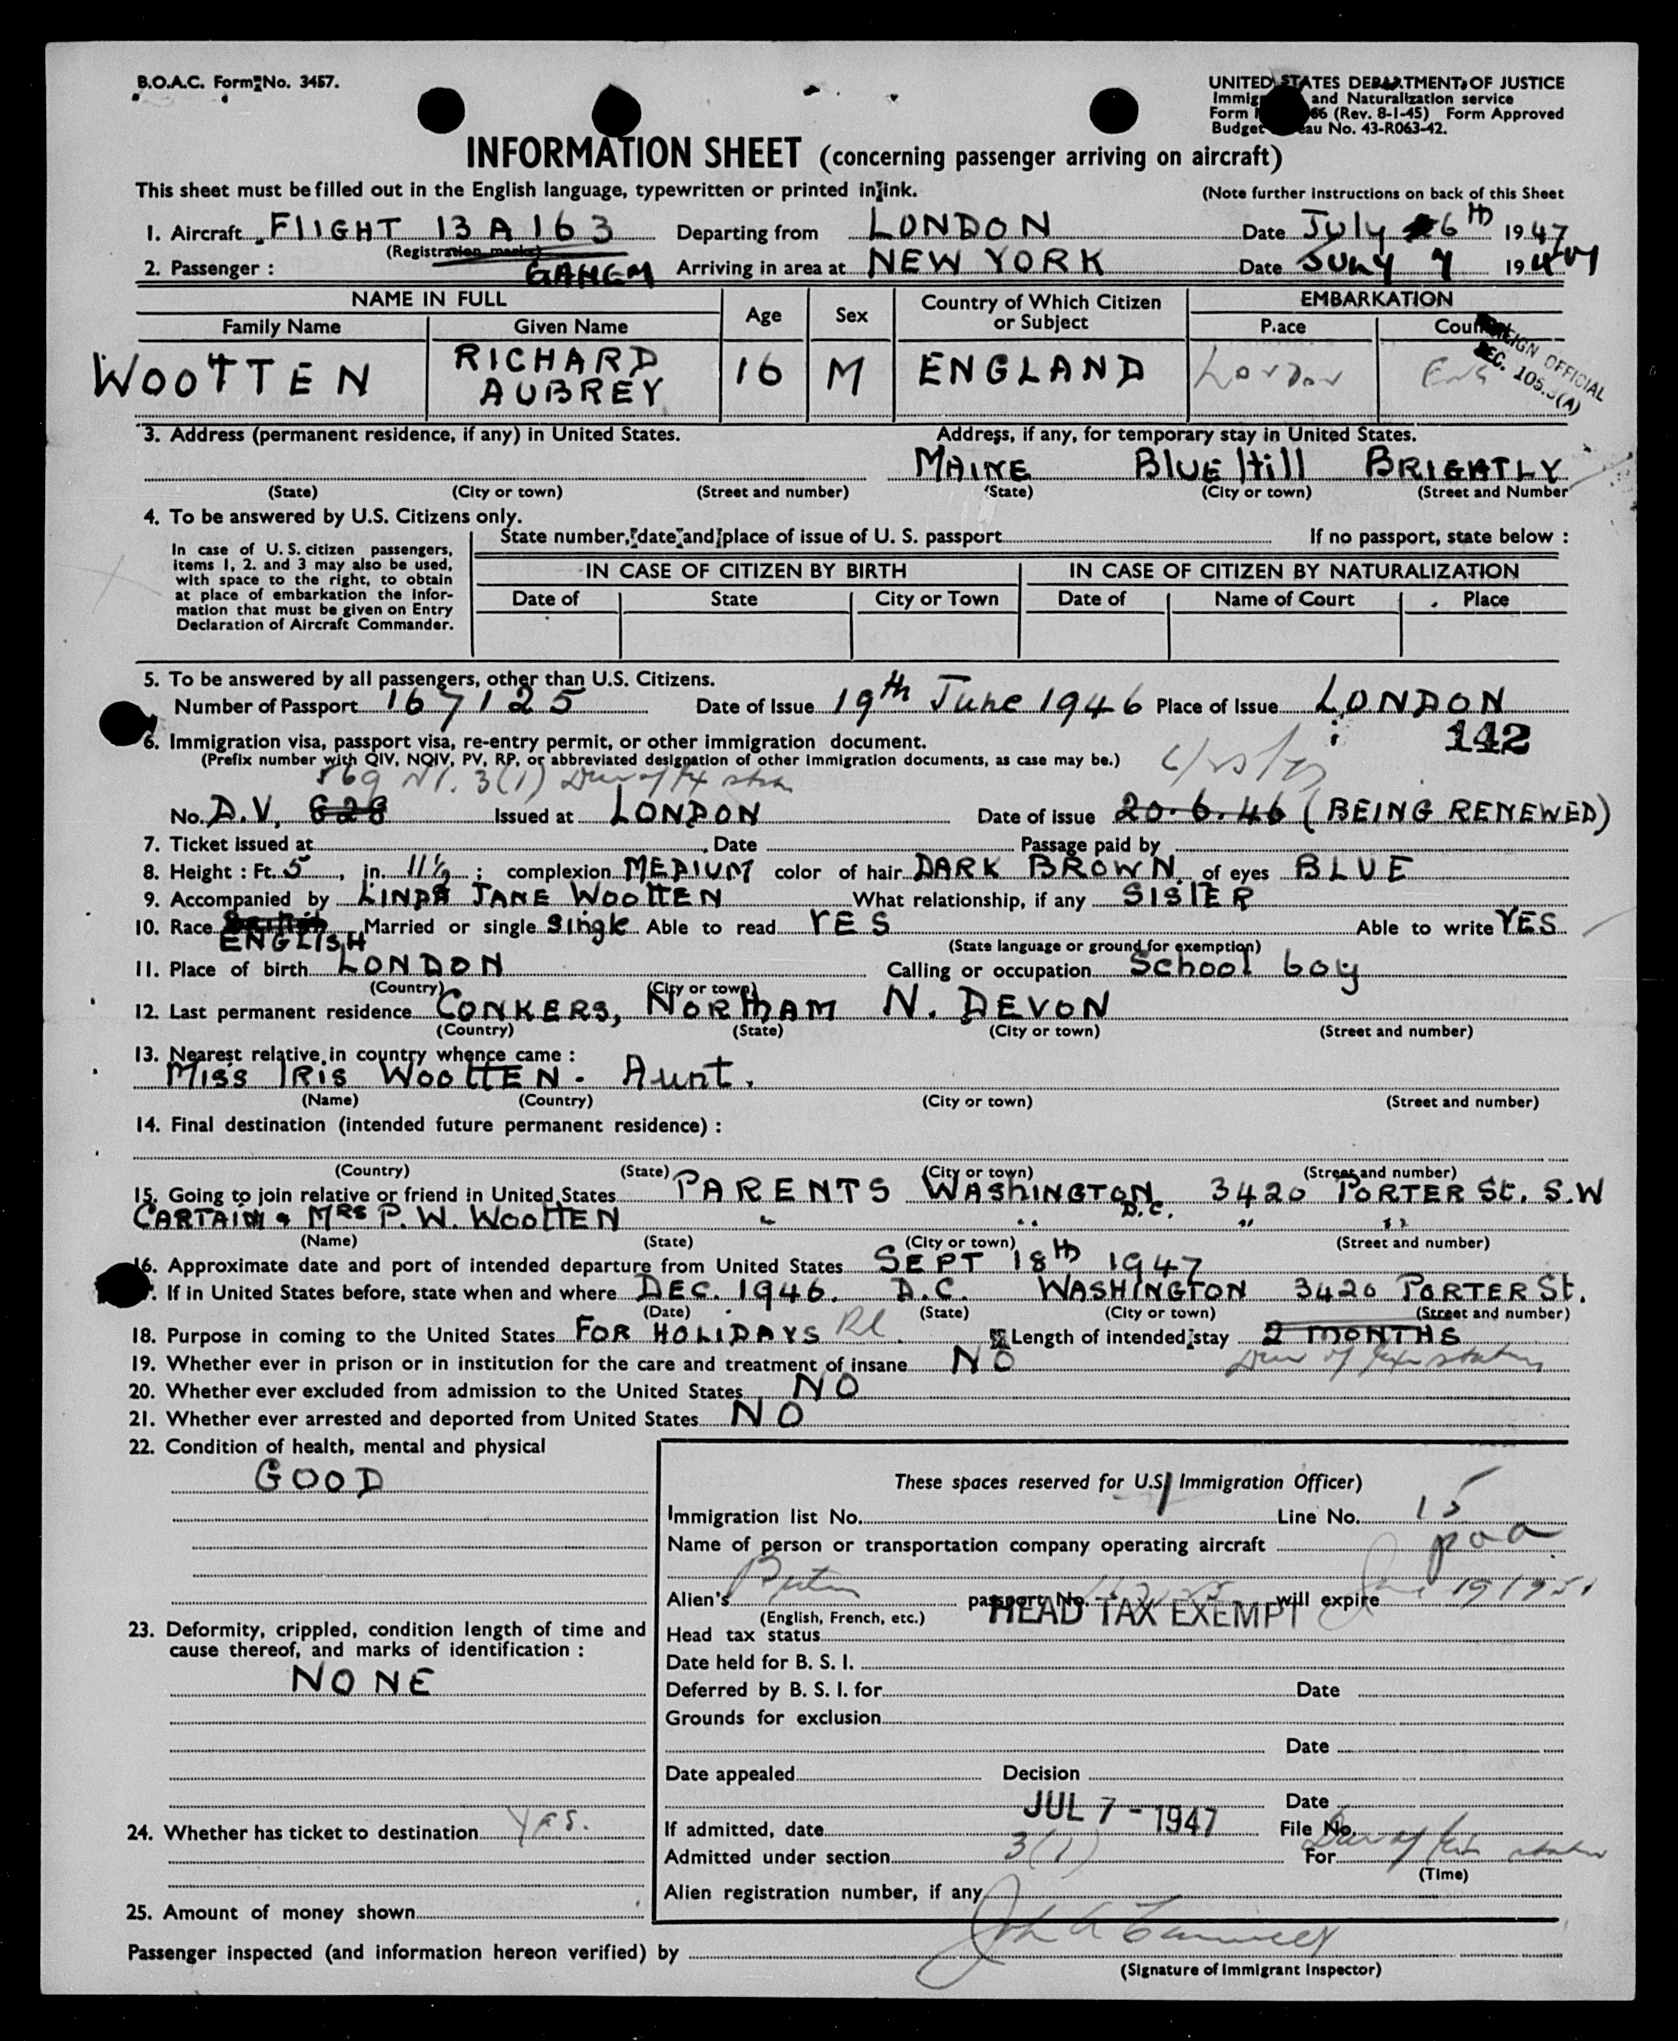 B.O.A.C. Form No. 3457.
UNITED STATES DEPARTMENT OF JUSTICE
Immig and Naturalization service
Form 66 (Rev. 8-1-45) Form Approved
Budget au No. 43-R063-42.
INFORMATION SHEET (concerning passenger arriving on aircraft)
This sheet must be filled out in the English language, typewritten or printed in ink.
(Note further instructions on back of this Sheet
1. Aircraft FLIGHT 13 A 163 Departing from LONDON Date July 6th 1947
(Registration marks)
2. Passenger : GAHEM Arriving in area at NEW YORK Date JULY 7 19
NAME IN FULL Age Sex Country of Which Citizen or Subject EMBARKATION
Family Name Given Name Place Coun
WOOTTEN RICHARD AUBREY 16 M ENGLAND London Eng
FOREIGN OFFICIAL
SEC. 105.3(A)
3. Address (permanent residence, if any) in United States. Address, if any, for temporary stay in United States.
MAINE BLUE Hill BRIGHTLY
(State) (City or town) (Street and number) (State) (City or town) (Street and Number
4. To be answered by U.S. Citizens only.
State number, date and place of issue of U. S. passport If no passport, state below :
In case of U. S. citizen passengers,
items 1, 2. and 3 may also be used,
with space to the right, to obtain
at place of embarkation the infor-
mation that must be given on Entry
Declaration of Aircraft Commander.
IN CASE OF CITIZEN BY BIRTH IN CASE OF CITIZEN BY NATURALIZATION
Date of State City or Town Date of Name of Court Place
5. To be answered by all passengers, other than U.S. Citizens.
Number of Passport 167125 Date of Issue 19th June 1946 Place of Issue LONDON
142
6. Immigration visa, passport visa, re-entry permit, or other immigration document.
(Prefix number with QIV, NQIV, PV, RP, or abbreviated designation of other immigration documents, as case may be.)
3(1)
No. D.V. 628 Issued at LONDON Date of issue 20.6.46 (BEING RENEWED)
7. Ticket issued at Date Passage paid by
8. Height : Ft. 5, in. 11½ ; complexion MEDIUM color of hair DARK BROWN of eyes BLUE
9. Accompanied by LINDA JANE WOOTTEN What relationship, if any SISTER
10. Race ENGLISH Married or single Single Able to read YES Able to write YES
(State language or ground for exemption)
11. Place of birth LONDON Calling or occupation School boy
(Country) (City or town)
12. Last permanent residence CONKERS, NORTHAM N. DEVON
(Country) (State) (City or town) (Street and number)
13. Nearest relative in country whence came :
MISS IRIS WOOTTEN. Aunt.
(Name) (Country) (City or town) (Street and number)
14. Final destination (intended future permanent residence) :
(Country) (State) (City or town) (Street and number)
15. Going to join relative or friend in United States PARENTS WASHINGTON D.C. 3420 PORTER St. S.W
CAPTAIN & MRS P. W. WOOTTEN " " " "
(Name) (State) (City or town) (Street and number)
16. Approximate date and port of intended departure from United States SEPT 18th 1947
. If in United States before, state when and where DEC. 1946. D.C. WASHINGTON 3420 PORTER St.
(Date) (State) (City or town) (Street and number)
18. Purpose in coming to the United States FOR HOLIDAYS Length of intended stay 2 MONTHS
19. Whether ever in prison or in institution for the care and treatment of insane NO
20. Whether ever excluded from admission to the United States NO
21. Whether ever arrested and deported from United States NO
22. Condition of health, mental and physical
GOOD
These spaces reserved for U.S. Immigration Officer)
Immigration list No. Line No. 15
Name of person or transportation company operating aircraft paa
Alien's passport No. will expire 19 1951
(English, French, etc.)
HEAD TAX EXEMPT
Head tax status
Date held for B. S. I.
Deferred by B. S. I. for Date
Grounds for exclusion
Date
Date appealed Decision
Date
JUL 7 - 1947
If admitted, date File No.
Admitted under section 3(1) For
(Time)
Alien registration number, if any
23. Deformity, crippled, condition length of time and
cause thereof, and marks of identification :
NONE
24. Whether has ticket to destination Yes.
25. Amount of money shown
Passenger inspected (and information hereon verified) by
(Signature of Immigrant Inspector)